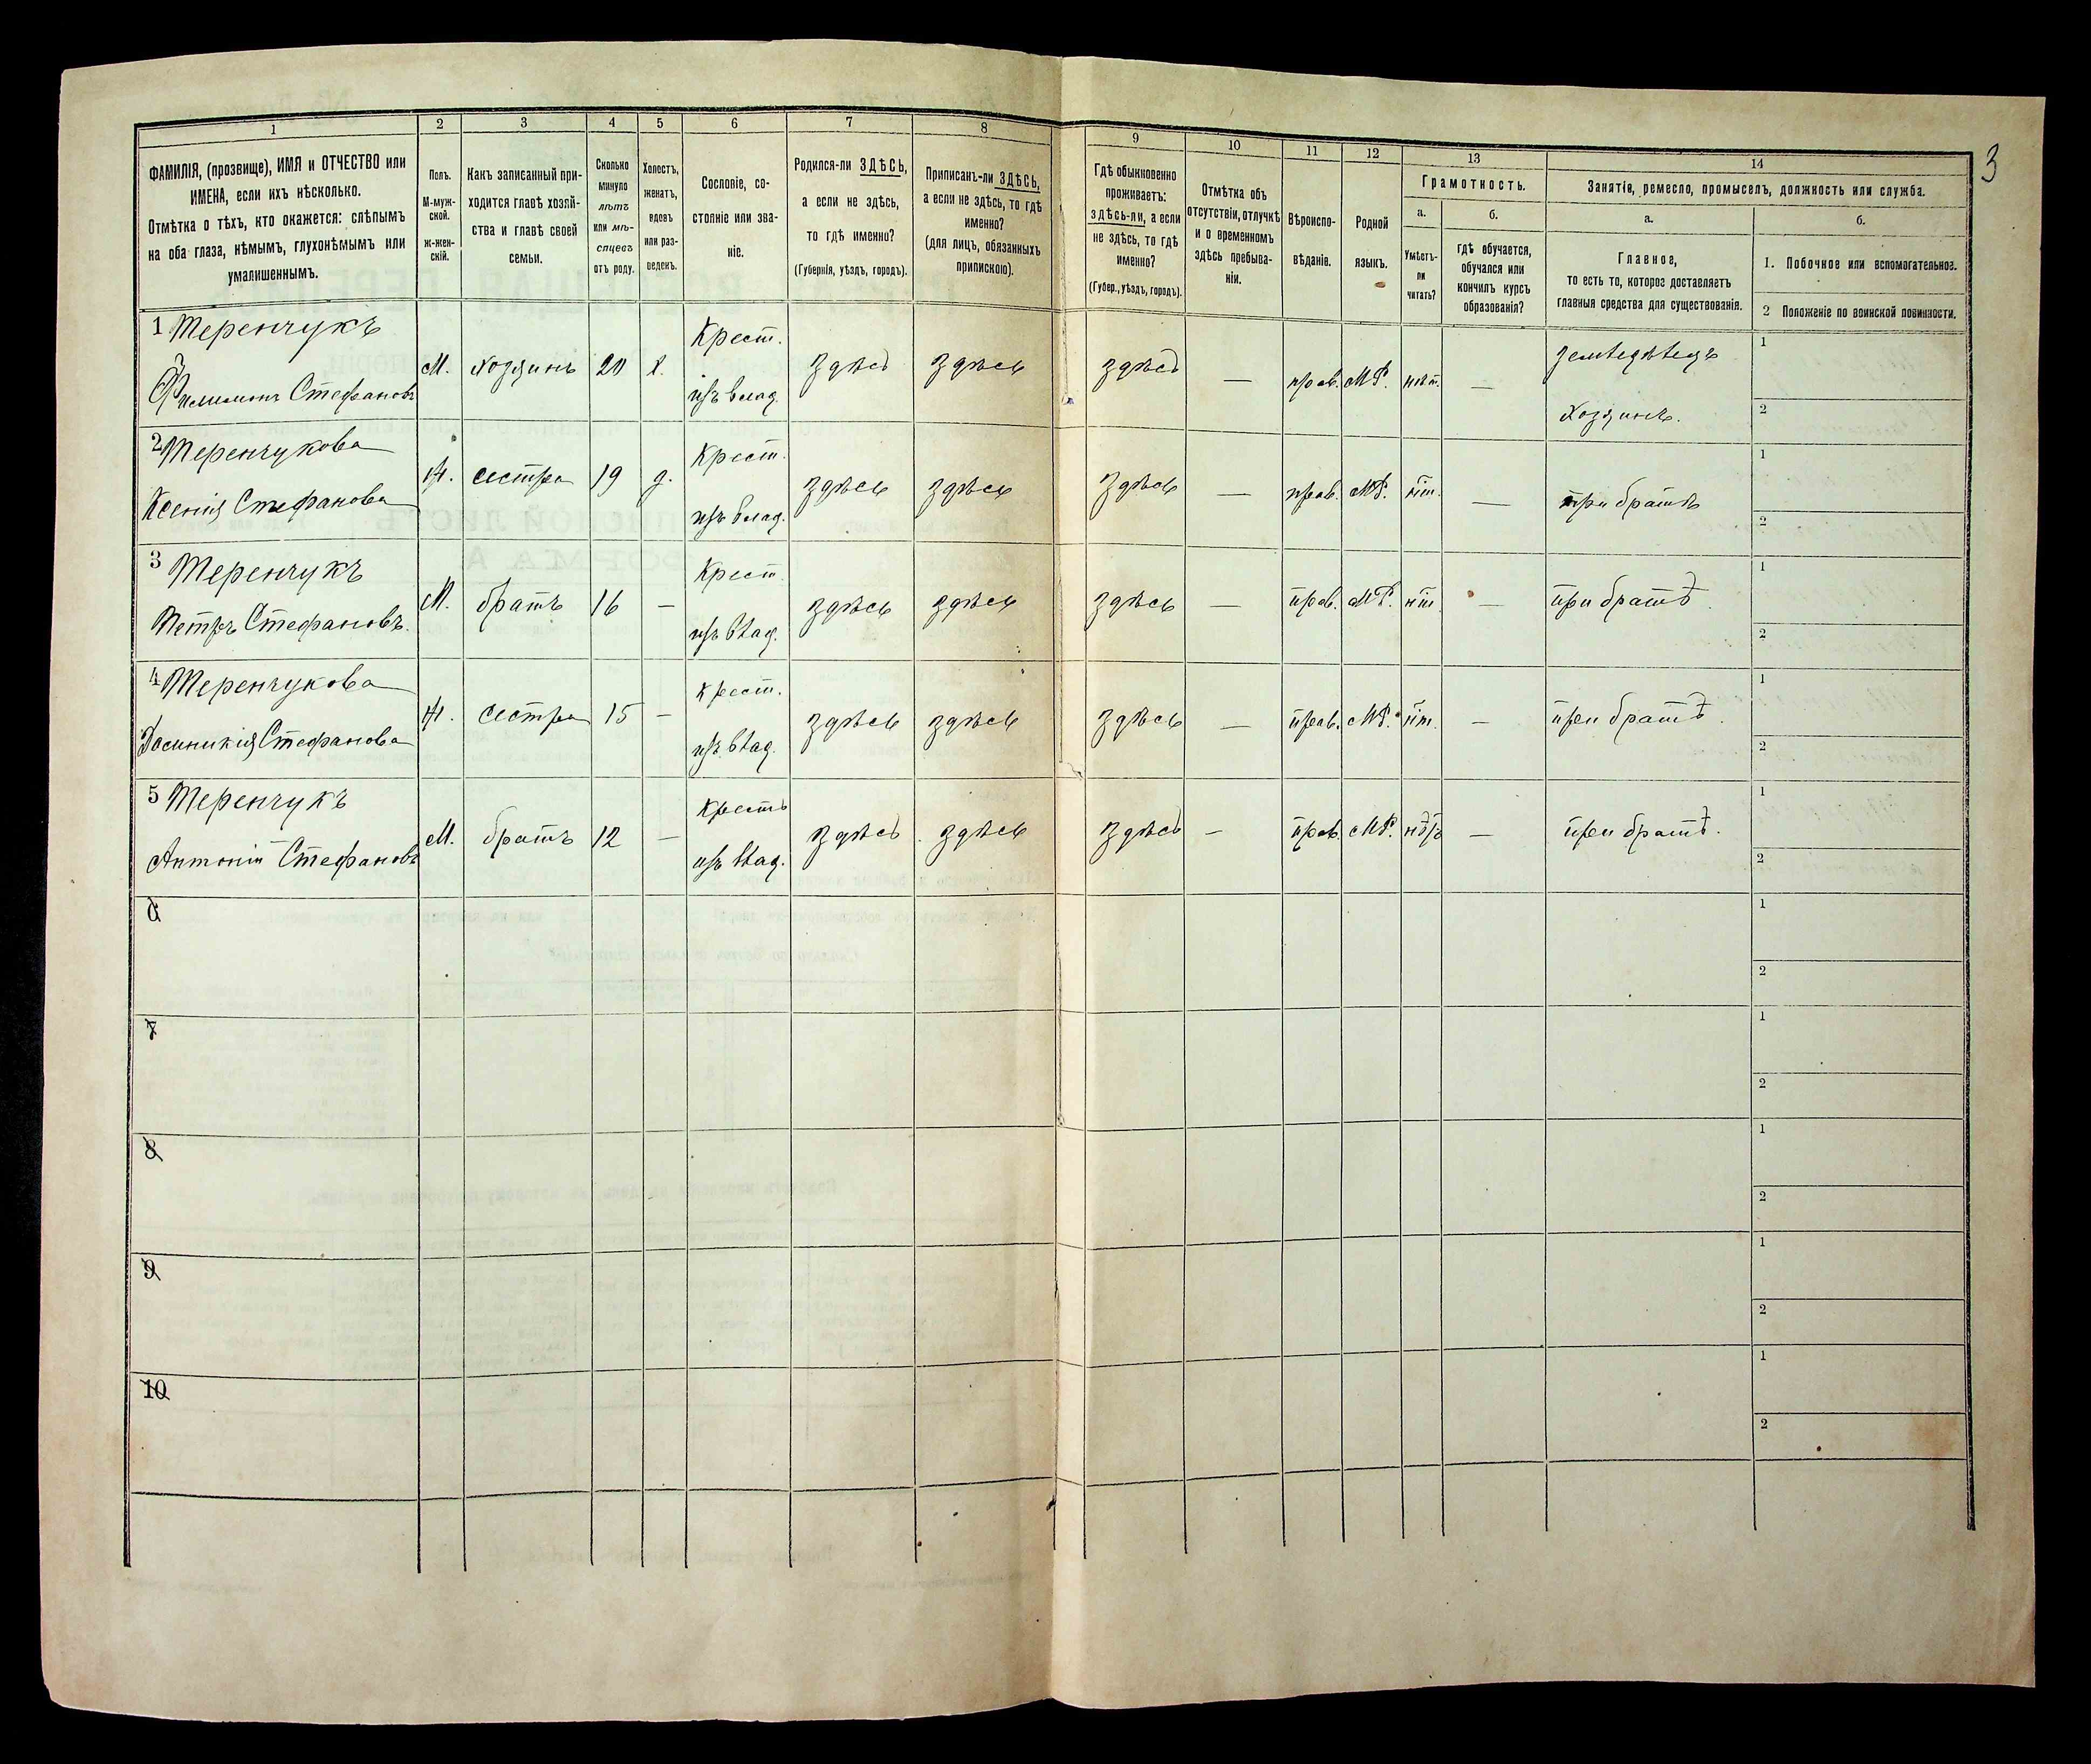 3
1
2
3
4
5
6
7
8
9
10
11
12
13
14
ФАМИЛІЯ, (прозвище), ИМЯ и ОТЧЕСТВО или
ИМЕНА, если ихъ нѣсколько.
Отмѣтка о тѣхъ, кто окажется: слѣпымъ
на оба глаза, нѣмымъ, глухонѣмымъ или
умалишеннымъ.
Полъ.
М-муж-
ской.
Ж-жен-
скій.
Какъ записанный при-
ходится главѣ хозяй-
ства и главѣ своей
семьи.
Сколько
минуло
лѣтъ
или мѣ-
сяцевъ
отъ роду.
Холостъ,
женатъ,
вдовъ
или раз-
веденъ.
Сословіе, со-
стояніе или зва-
ніе.
Родился-ли ЗДѢСЬ,
а если не здѣсь,
то гдѣ именно?
(Губернія, уѣздъ, городъ).
Приписанъ-ли ЗДѢСЬ,
а если не здѣсь, то гдѣ
именно?
(для лицъ, обязанныхъ
припискою).
Гдѣ обыкновенно
проживаетъ:
здѣсь-ли, а если
не здѣсь, то гдѣ
именно?
(Губер., уѣздъ, городъ).
Отмѣтка объ
отсутствіи, отлучкѣ
и о временномъ
здѣсь пребыва-
ніи.
Вѣроиспо-
вѣданіе.
Родной
языкъ.
Грамотность.
а.
Умѣетъ-
ли
читать?
б.
гдѣ обучается,
обучался или
кончилъ курсъ
образованія?
Занятіе, ремесло, промыселъ, должность или служба.
а.
Главное,
то есть то, которое доставляетъ
главныя средства для существованія.
б.
1. Побочное или вспомогательное.
2 Положеніе по воинской повинности.
1 Теренчукъ
Филимонъ Стефановъ
М. хозяинъ 20 х.
Крест.
изъ влад.
здѣсь здѣсь здѣсь — прав. МР. нѣт. —
земледѣлецъ
Хозяинъ.
1
2
2 Теренчукова
Ксенія Стефанова
Ж. сестра 19 д.
Крест.
изъ влад.
здѣсь здѣсь здѣсь — прав. МР. нѣт. — при братѣ
1
2
3 Теренчукъ
Петръ Стефановъ.
М. братъ 16 —
Крест.
изъ влад.
здѣсь здѣсь здѣсь — прав. МР. нѣт. — при братѣ
1
2
4 Теренчукова
Стефанова
Ж. сестра 15 —
крест.
изъ влад.
здѣсь здѣсь здѣсь — прав. МР. нѣт. — при братѣ.
1
2
5 Теренчукъ
Антоній Стефановъ
М. братъ 12 —
Крестъ
изъ влад.
здѣсь здѣсь здѣсь — прав. МР. — при братѣ.
1
2
6
1
2
7
1
2
8
1
2
9
1
2
10
1
2